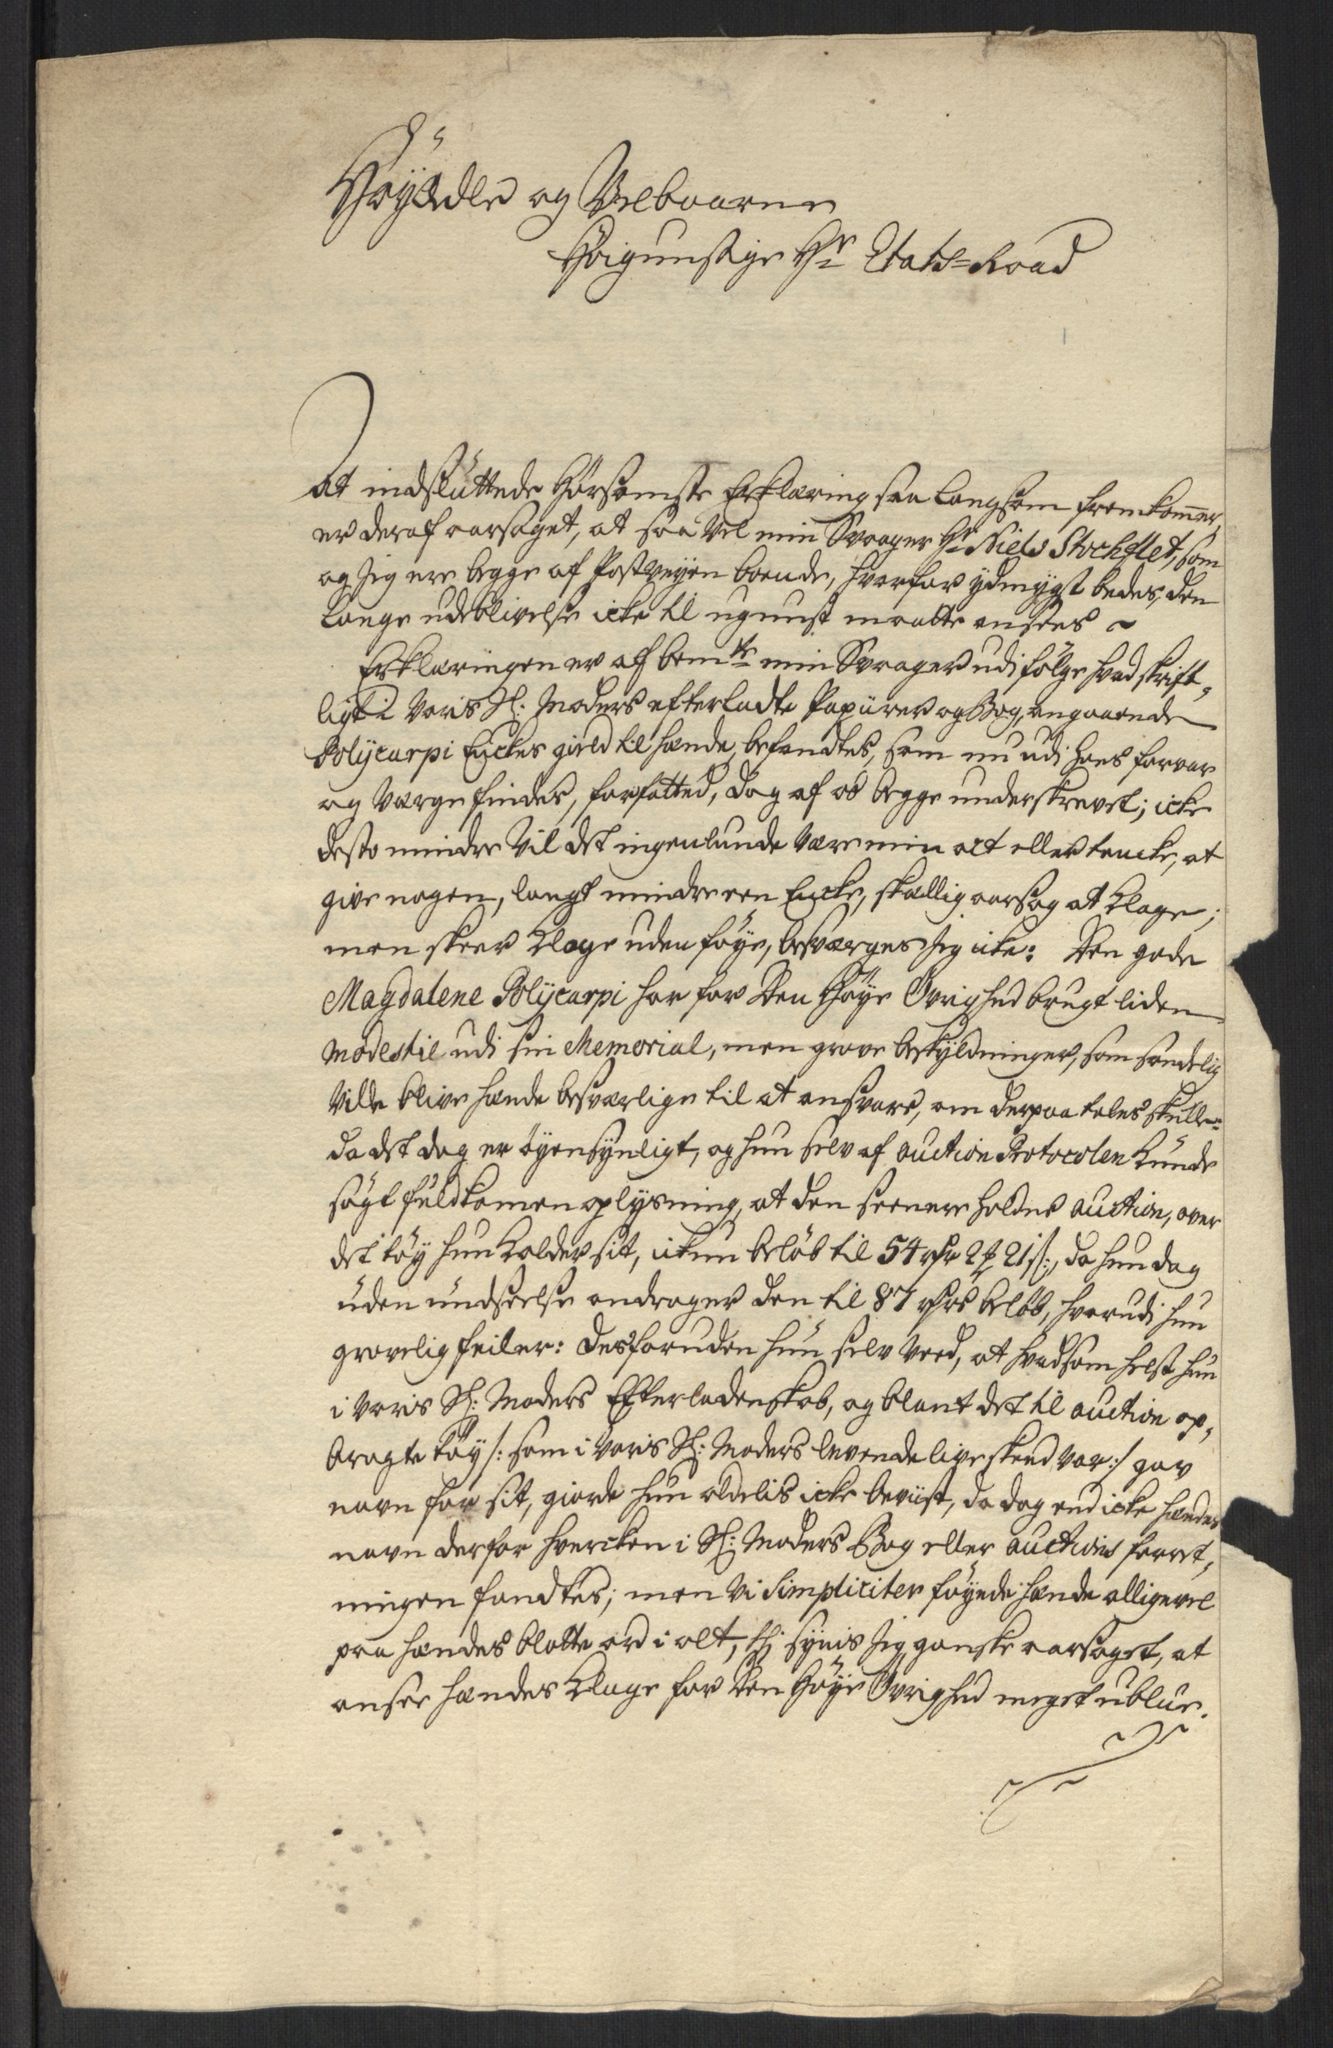 HöyÆdle og Velbaarne
Höigunstige Hr Etats-Raad
At indsluttede Hörsomste Erklæring saa langsom fremkommer,
er deraf aarsaget, at saa vel min Svoger Hr Niels Stockflet, som
og Jeg ere begge af Postveyen boende, hvorfor ydmygst bedes, den
lange udeblivelse icke til ugunst maatte ansees ~
Erklæringen er af bemte min Svoger udi fölge hvad skrift-
ligt i voris Sl: Moders efterladte Papiirer og Bog, angaaende
Polycarpi Enckes gield til hende, befandtes, som nu udi hans forvar
og værge findes, forfatted, dog af os begge underskrevet; icke
desto mindre vil det ingenlunde være min act eller tancke, at
give nogen, langt mindre een Encke, skiellig aarsag at klage;
men skeer klage uden föye, besværges Jeg icke: Den gode
Magdalene Polycarpi har for Den Höye Övrighed brugt liden
modestie udi sin Memorial, men grove beskyldninger, som sandelig
vilde blive hende besværlige til at ansvare, om derpaa tales skulle:
da det dog er öyensynligt, og hun selv af auctionsProtocolen kunde
sögt fuldkomen oplysning, at den seenere holdne auction, over
det töy hun kalder sit, ickun belöb til 54 rdr 2 ꝟ 21 s:, da hun dog
uden undseelse andrager den til 87 rdrs belöb, hvorudi hun
grovelig feiler: desforuden hun selv veed, at hvadsomhelst hun
i voris Sl: Moders Efterladenskab, og blant det til auction op-
bragte töy /: som i voris Sl: Moders levende live skeed var :/ gav
navn for sit, giorde hun aldelis icke beviist, da dog end icke hendes
navn derfor hvercken i Sl: Moders Bog eller auctions forret-
ningen fandtes; men vi simpliciter föyede hende alligevel
paa hendes blotte ord i alt, thi synis Jeg ganske aarsaget, at
ansee hendes klage for Den Höye Övrighed meget ublue.